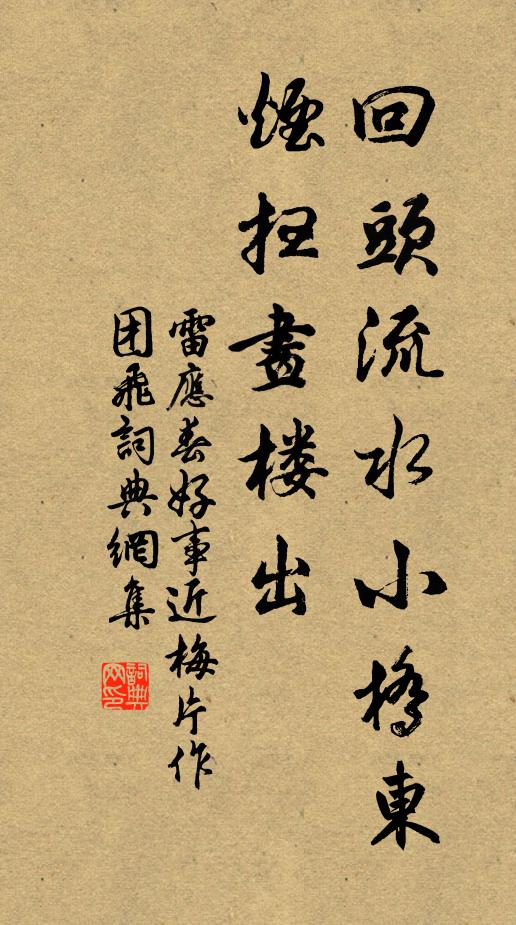 回頭流水小橋東
煙掃畫楼出
雷應春好事近梅片作
团飛詞典網集
詞典网印